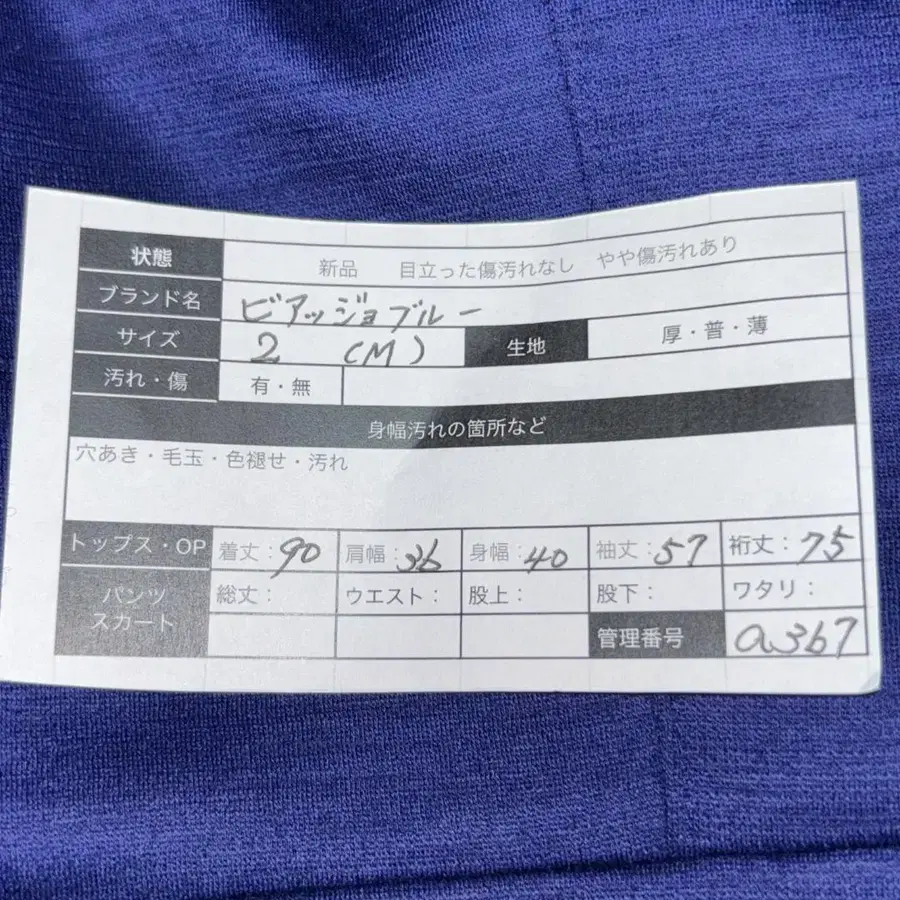 状態 新品 目立った傷汚れなし やや傷汚れあり
ブランド名 ビアッジョブルー
サイズ 2 (M) 生地 厚・普・薄
汚れ・傷 有・無
身幅汚れの箇所など
穴あき・毛玉・色褪せ・汚れ
トップス・OP 着丈:90 肩幅:36 身幅:40 袖丈:57 裄丈:75
パンツ スカート 総丈: ウエスト: 股上: 股下: ワタリ:
管理番号 a367